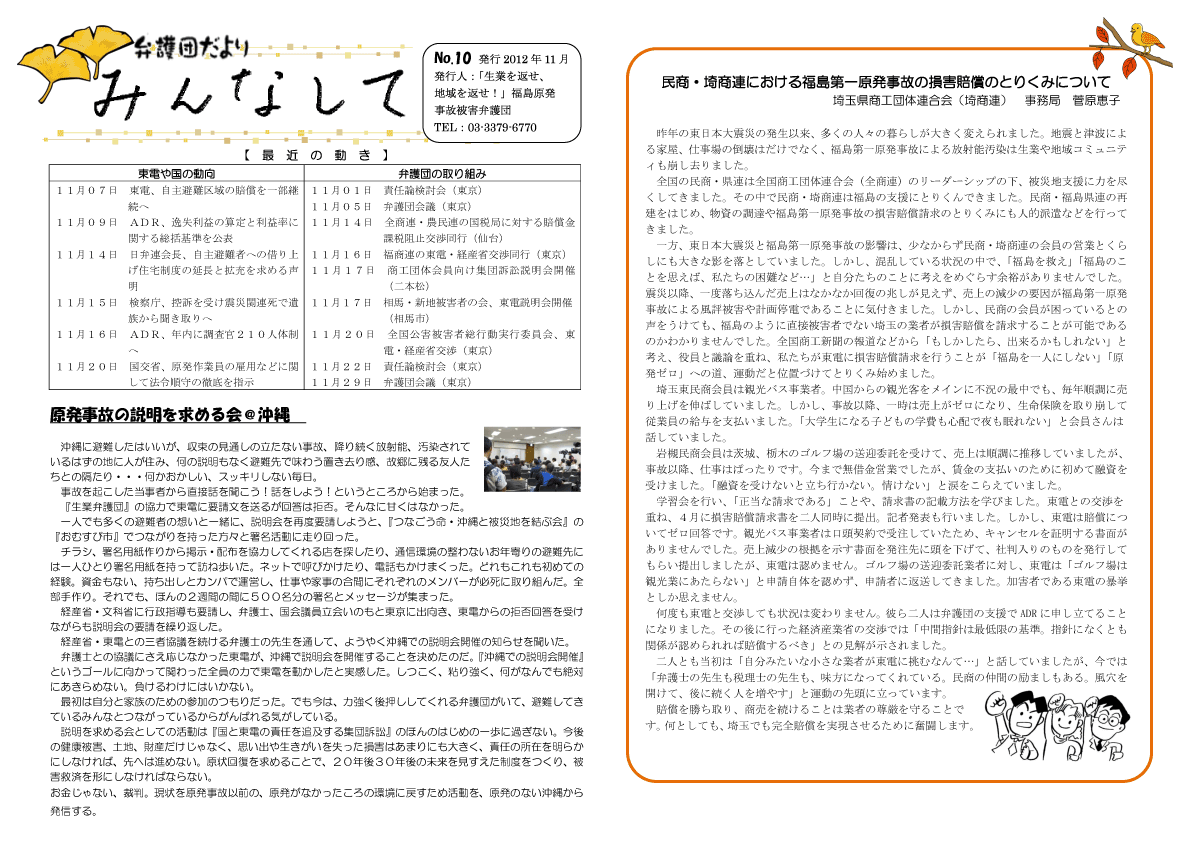 弁護団だより
みんなして
No.10 発行 2012 年 11 月
発行人:「生業を返せ、
地域を返せ!」福島原発
事故被害弁護団
TEL:03-3379-6770
【 最 近 の 動 き 】
東電や国の動向
11月07日 東電、自主避難区域の賠償を一部継
続へ
11月09日 ADR、逸失利益の算定と利益率に
関する総括基準を公表
11月14日 日弁連会長、自主避難者への借り上
げ住宅制度の延長と拡充を求める声
明
11月15日 検察庁、控訴を受け震災関連死で遺
族から聞き取りへ
11月16日 ADR、年内に調査官210人体制
へ
11月20日 国交省、原発作業員の雇用などに関
して法令順守の徹底を指示
弁護団の取り組み
11月01日 責任論検討会(東京)
11月05日 弁護団会議(東京)
11月14日 全商連・農民連の国税局に対する賠償金
課税阻止交渉同行(仙台)
11月16日 福商連の東電・経産省交渉同行(東京)
11月17日 商工団体会員向け集団訴訟説明会開催
(二本松)
11月17日 相馬・新地被害者の会、東電説明会開催
(相馬市)
11月20日 全国公害被害者総行動実行委員会、東
電・経産省交渉(東京)
11月22日 責任論検討会(東京)
11月29日 弁護団会議(東京)
原発事故の説明を求める会@沖縄
沖縄に避難したはいいが、収束の見通しの立たない事故、降り続く放射能、汚染されて
いるはずの地に人が住み、何の説明もなく避難先で味わう置き去り感、故郷に残る友人た
ちとの隔たり・・・何かおかしい、スッキリしない毎日。
事故を起こした当事者から直接話を聞こう!話をしよう!というところから始まった。
『生業弁護団』の協力で東電に要請文を送るが回答は拒否。そんなに甘くはなかった。
一人でも多くの避難者の想いと一緒に、説明会を再度要請しようと、『つなごう命・沖縄と被災地を結ぶ会』の
『おむすび市』でつながりを持った方々と署名活動に走り回った。
チラシ、署名用紙作りから掲示・配布を協力してくれる店を探したり、通信環境の整わないお年寄りの避難先に
は一人ひとり署名用紙を持って訪ね歩いた。ネットで呼びかけたり、電話もかけまくった。どれもこれも初めての
経験。資金もない、持ち出しとカンパで運営し、仕事や家事の合間にそれぞれのメンバーが必死に取り組んだ。全
部手作り。それでも、ほんの2週間の間に500名分の署名とメッセージが集まった。
経産省・文科省に行政指導も要請し、弁護士、国会議員立会いのもと東京に出向き、東電からの拒否回答を受け
ながらも説明会の要請を繰り返した。
経産省・東電との三者協議を続ける弁護士の先生を通して、ようやく沖縄での説明会開催の知らせを聞いた。
弁護士との協議にさえ応じなかった東電が、沖縄で説明会を開催することを決めたのだ。『沖縄での説明会開催』
というゴールに向かって関わった全員の力で東電を動かしたと実感した。しつこく、粘り強く、何がなんでも絶対
にあきらめない。負けるわけにはいかない。
最初は自分と家族のための参加のつもりだった。でも今は、力強く後押ししてくれる弁護団がいて、避難してき
ているみんなとつながっているからがんばれる気がしている。
説明を求める会としての活動は『国と東電の責任を追及する集団訴訟』のほんのはじめの一歩に過ぎない。今後
の健康被害、土地、財産だけじゃなく、思い出や生きがいを失った損害はあまりにも大きく、責任の所在を明らか
にしなければ、先へは進めない。原状回復を求めることで、20年後30年後の未来を見すえた制度をつくり、被
害救済を形にしなければならない。
お金じゃない、裁判。現状を原発事故以前の、原発がなかったころの環境に戻すため活動を、原発のない沖縄から
発信する。
民商・埼商連における福島第一原発事故の損害賠償のとりくみについて
埼玉県商工団体連合会(埼商連) 事務局 菅原恵子
昨年の東日本大震災の発生以来、多くの人々の暮らしが大きく変えられました。地震と津波によ
る家屋、仕事場の倒壊はだけでなく、福島第一原発事故による放射能汚染は生業や地域コミュニテ
ィも崩し去りました。
全国の民商・県連は全国商工団体連合会(全商連)のリーダーシップの下、被災地支援に力を尽
くしてきました。その中で民商・埼商連は福島の支援にとりくんできました。民商・福島県連の再
建をはじめ、物資の調達や福島第一原発事故の損害賠償請求のとりくみにも人的派遣などを行って
きました。
一方、東日本大震災と福島第一原発事故の影響は、少なからず民商・埼商連の会員の営業とくら
しにも大きな影を落としていました。しかし、混乱している状況の中で、「福島を救え」「福島のこ
とを思えば、私たちの困難など…」と自分たちのことに考えをめぐらす余裕がありませんでした。
震災以降、一度落ち込んだ売上はなかなか回復の兆しが見えず、売上の減少の要因が福島第一原発
事故による風評被害や計画停電であることに気付きました。しかし、民商の会員が困っているとの
声をうけても、福島のように直接被害者でない埼玉の業者が損害賠償を請求することが可能である
のかわかりませんでした。全国商工新聞の報道などから「もしかしたら、出来るかもしれない」と
考え、役員と議論を重ね、私たちが東電に損害賠償請求を行うことが「福島を一人にしない」「原
発ゼロ」への道、運動だと位置づけてとりくみ始めました。
埼玉東民商会員は観光バス事業者。中国からの観光客をメインに不況の最中でも、毎年順調に売
り上げを伸ばしていました。しかし、事故以降、一時は売上がゼロになり、生命保険を取り崩して
従業員の給与を支払いました。「大学生になる子どもの学費も心配で夜も眠れない」と会員さんは
話していました。
岩槻民商会員は茨城、栃木のゴルフ場の送迎委託を受けて、売上は順調に推移していましたが、
事故以降、仕事はぱったりです。今まで無借金営業でしたが、賃金の支払いのために初めて融資を
受けました。「融資を受けないと立ち行かない。情けない」と涙をこらえていました。
学習会を行い、「正当な請求である」ことや、請求書の記載方法を学びました。東電との交渉を
重ね、4月に損害賠償請求書を二人同時に提出。記者発表も行いました。しかし、東電は賠償につ
いてゼロ回答です。観光バス事業者は口頭契約で受注していたため、キャンセルを証明する書面が
ありませんでした。売上減少の根拠を示す書面を発注先に頭を下げて、社判入りのものを発行して
もらい提出しましたが、東電は認めません。ゴルフ場の送迎委託業者に対し、東電は「ゴルフ場は
観光業にあたらない」と申請自体を認めず、申請者に返送してきました。加害者である東電の暴挙
としか思えません。
何度も東電と交渉しても状況は変わりません。彼ら二人は弁護団の支援で ADR に申し立てること
になりました。その後に行った経済産業省の交渉では「中間指針は最低限の基準。指針になくとも
関係が認められれば賠償するべき」との見解が示されました。
二人とも当初は「自分みたいな小さな業者が東電に挑むなんて…」と話していましたが、今では
「弁護士の先生も税理士の先生も、味方になってくれている。民商の仲間の励ましもある。風穴を
開けて、後に続く人を増やす」と運動の先頭に立っています。
賠償を勝ち取り、商売を続けることは業者の尊厳を守ることで
す。何としても、埼玉でも完全賠償を実現させるために奮闘します。